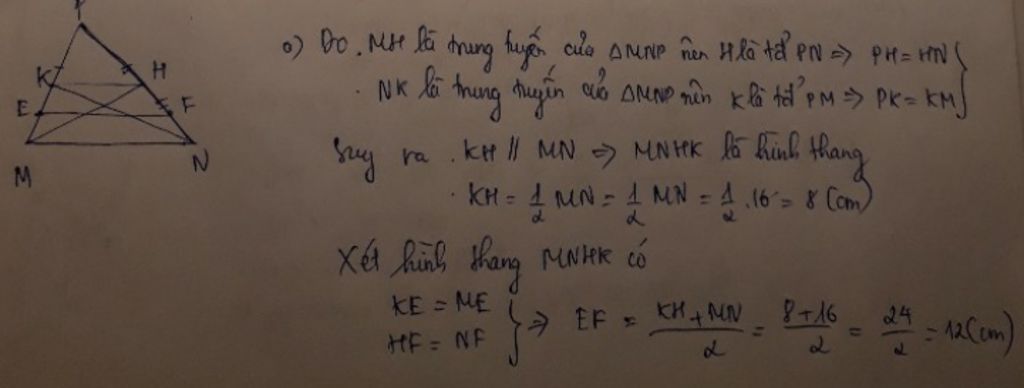 P
K H
E F
M N
a) Do . MH là trung tuyến của ΔMNP nên H là tđ PN => PH = HN }
. NK là trung tuyến của ΔMNP nên K là tđ PM => PK = KM }
Suy ra . KH // MN => MNHK là hình thang
. KH = 1/2 MN = 1/2 MN = 1/2 . 16 = 8 (cm)
Xét hình thang MNHK có
KE = ME
HF = NF } => EF = (KH + MN)/2 = (8 + 16)/2 = 24/2 = 12 (cm)